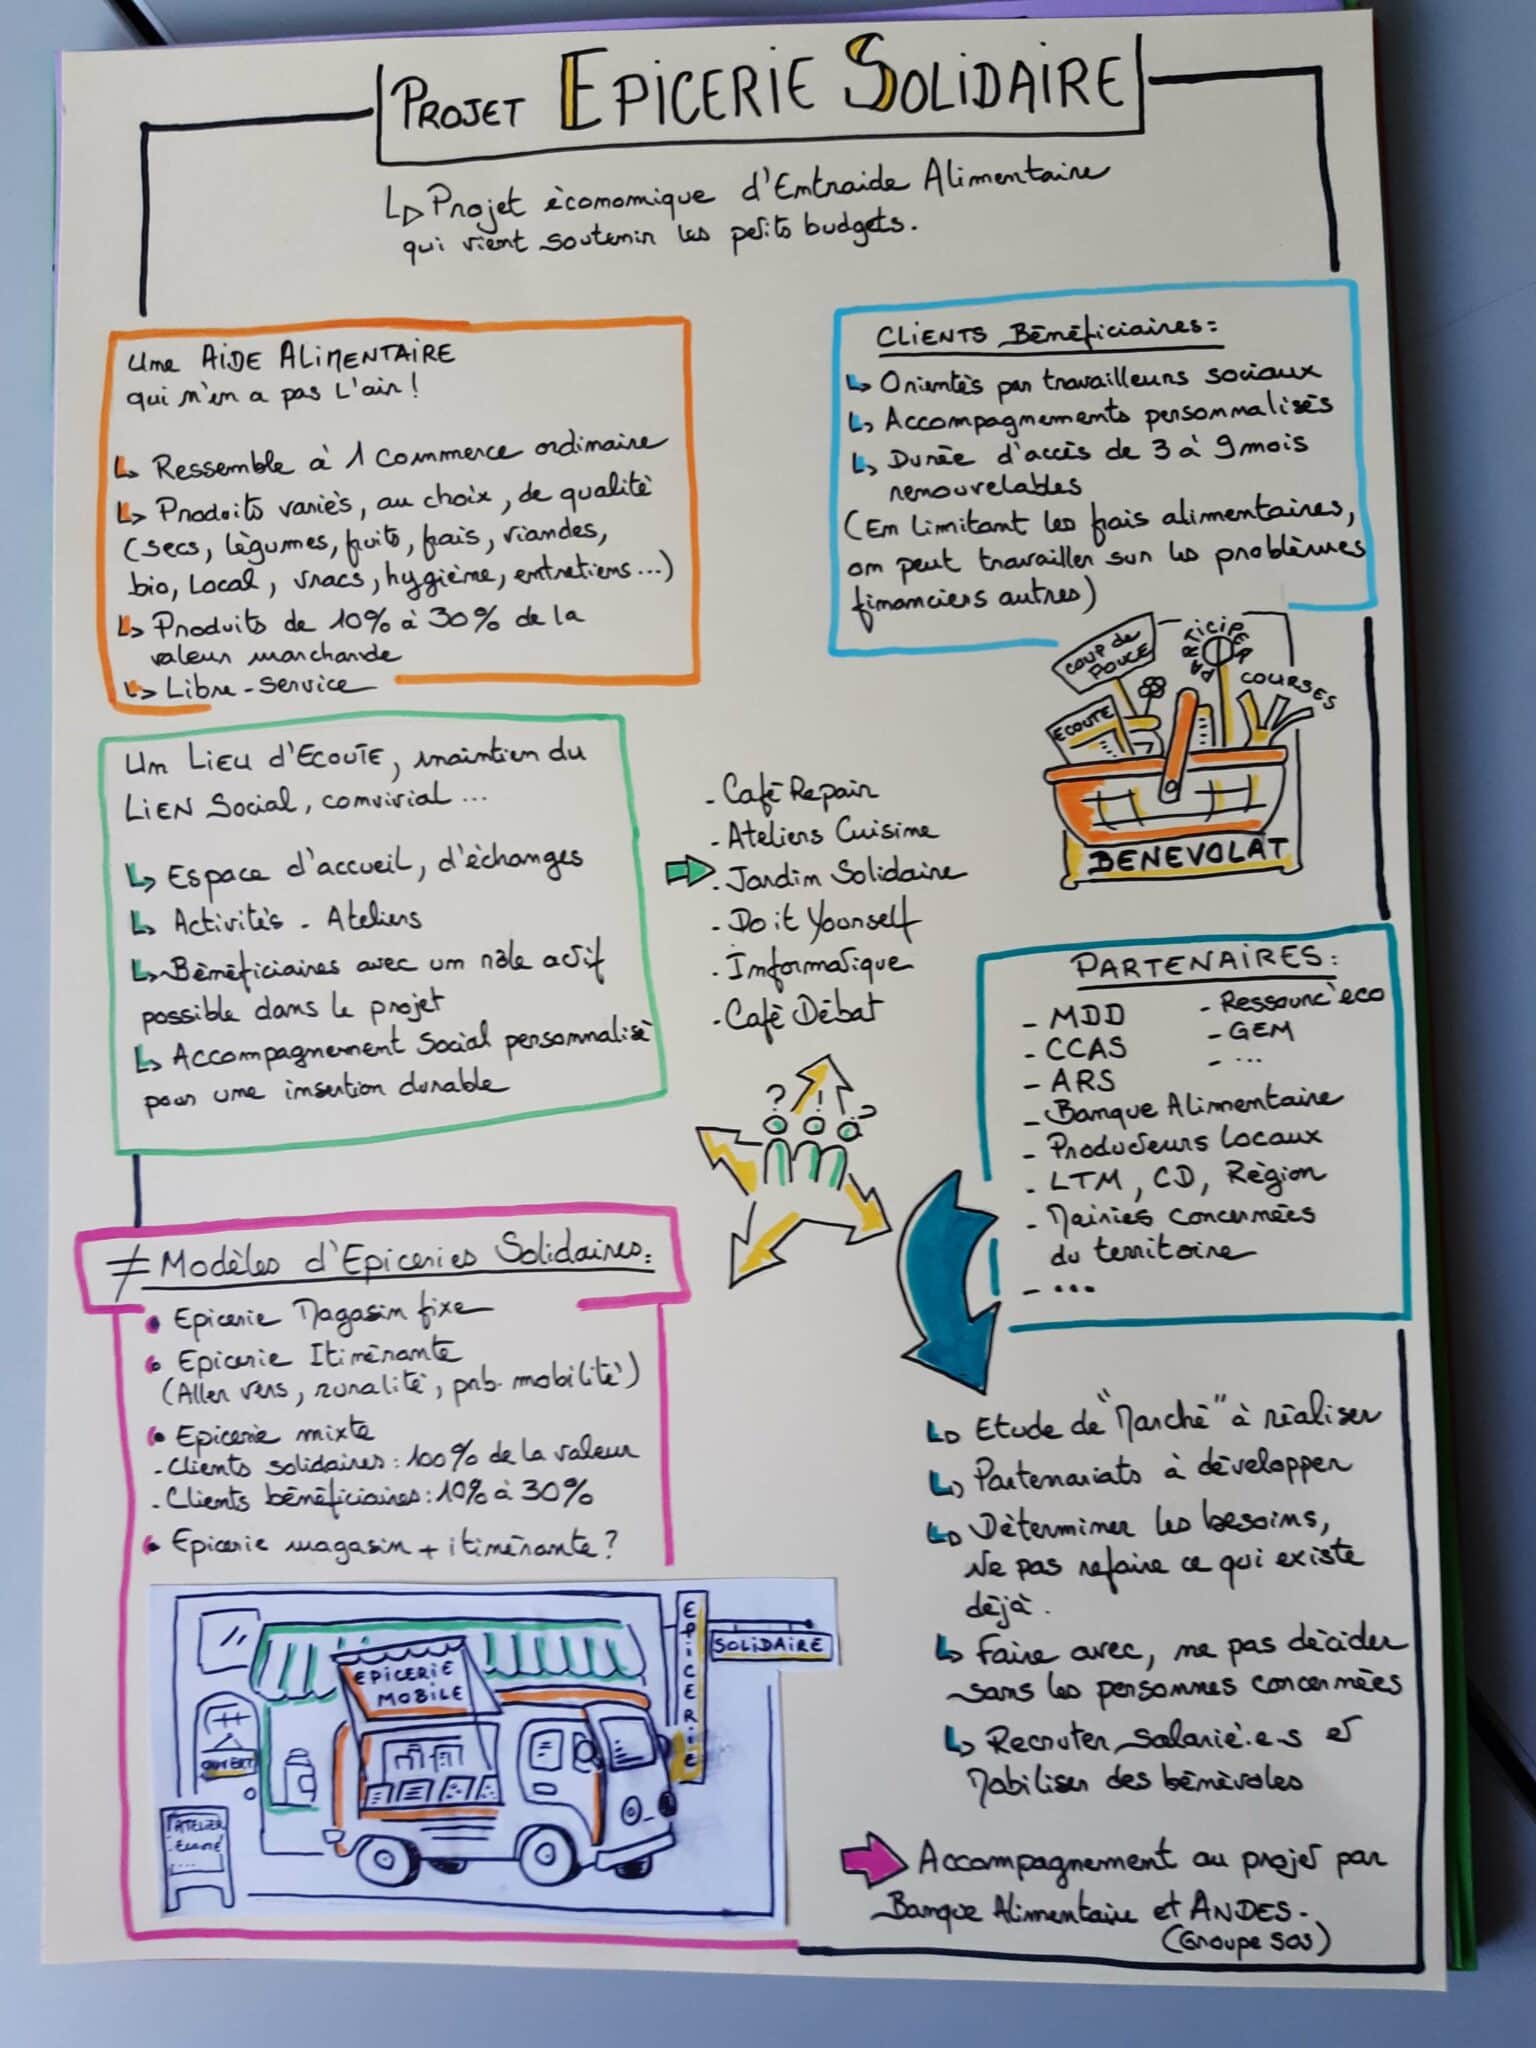 PROJET EPICERIE SOLIDAIRE
Projet économique d'Entraide Alimentaire
qui vient soutenir les petits budgets.
Une AIDE ALIMENTAIRE
qui n'en a pas l'air !
Ressemble à 1 Commerce ordinaire
Produits variés, au choix, de qualité
(secs, légumes, fruits, frais, viandes,
bio, local, vracs, hygiène, entretiens...)
Produits de 10% à 30% de la
valeur marchande
Libre-service
CLIENTS Bénéficiaires :
Orientés par travailleurs sociaux
Accompagnements personnalisés
Durée d'accès de 3 à 9 mois
renouvelables
(En limitant les frais alimentaires,
on peut travailler sur les problèmes
financiers autres)
COUP de
POUCE
PARTICIPER
COURSES
ECOUTE
BENEVOLAT
Un LIEU d'ECOUTE, maintien du
LIEN Social, convivial...
Espace d'accueil, d'échanges
Activités - Ateliers
Bénéficiaires avec un rôle actif
possible dans le projet
Accompagnement Social personnalisé
pour une insertion durable
- Café Repair
- Ateliers Cuisine
- Jardin Solidaire
- Do it Yourself
- Informatique
- Café Débat
? ! ?
PARTENAIRES :
- MDD
- CCAS
- ARS
- Ressourc'eco
- GEM
- ...
- Banque Alimentaire
- Producteurs Locaux
- LTM, CD, Région
- Mairies concernées
du territoire
- ...
≠ Modèles d'Epiceries Solidaires :
• Epicerie Magasin fixe
• Epicerie Itinérante
(Aller vers, ruralité, prb. mobilité)
• Epicerie mixte
- Clients solidaires : 100% de la valeur
- Clients bénéficiaires : 10% à 30%
• Epicerie magasin + itinérante ?
EPICERIE
MOBILE
EPICERIE
SOLIDAIRE
OUVERT
ATELIER
Etude de "Marché" à réaliser
Partenariats à développer
Déterminer les besoins,
Ne pas refaire ce qui existe
déjà.
Faire avec, ne pas décider
sans les personnes concernées
Recruter salarié.e.s et
Mobiliser des bénévoles
Accompagnement au projet par
Banque Alimentaire et ANDES.
(Groupe SOS)